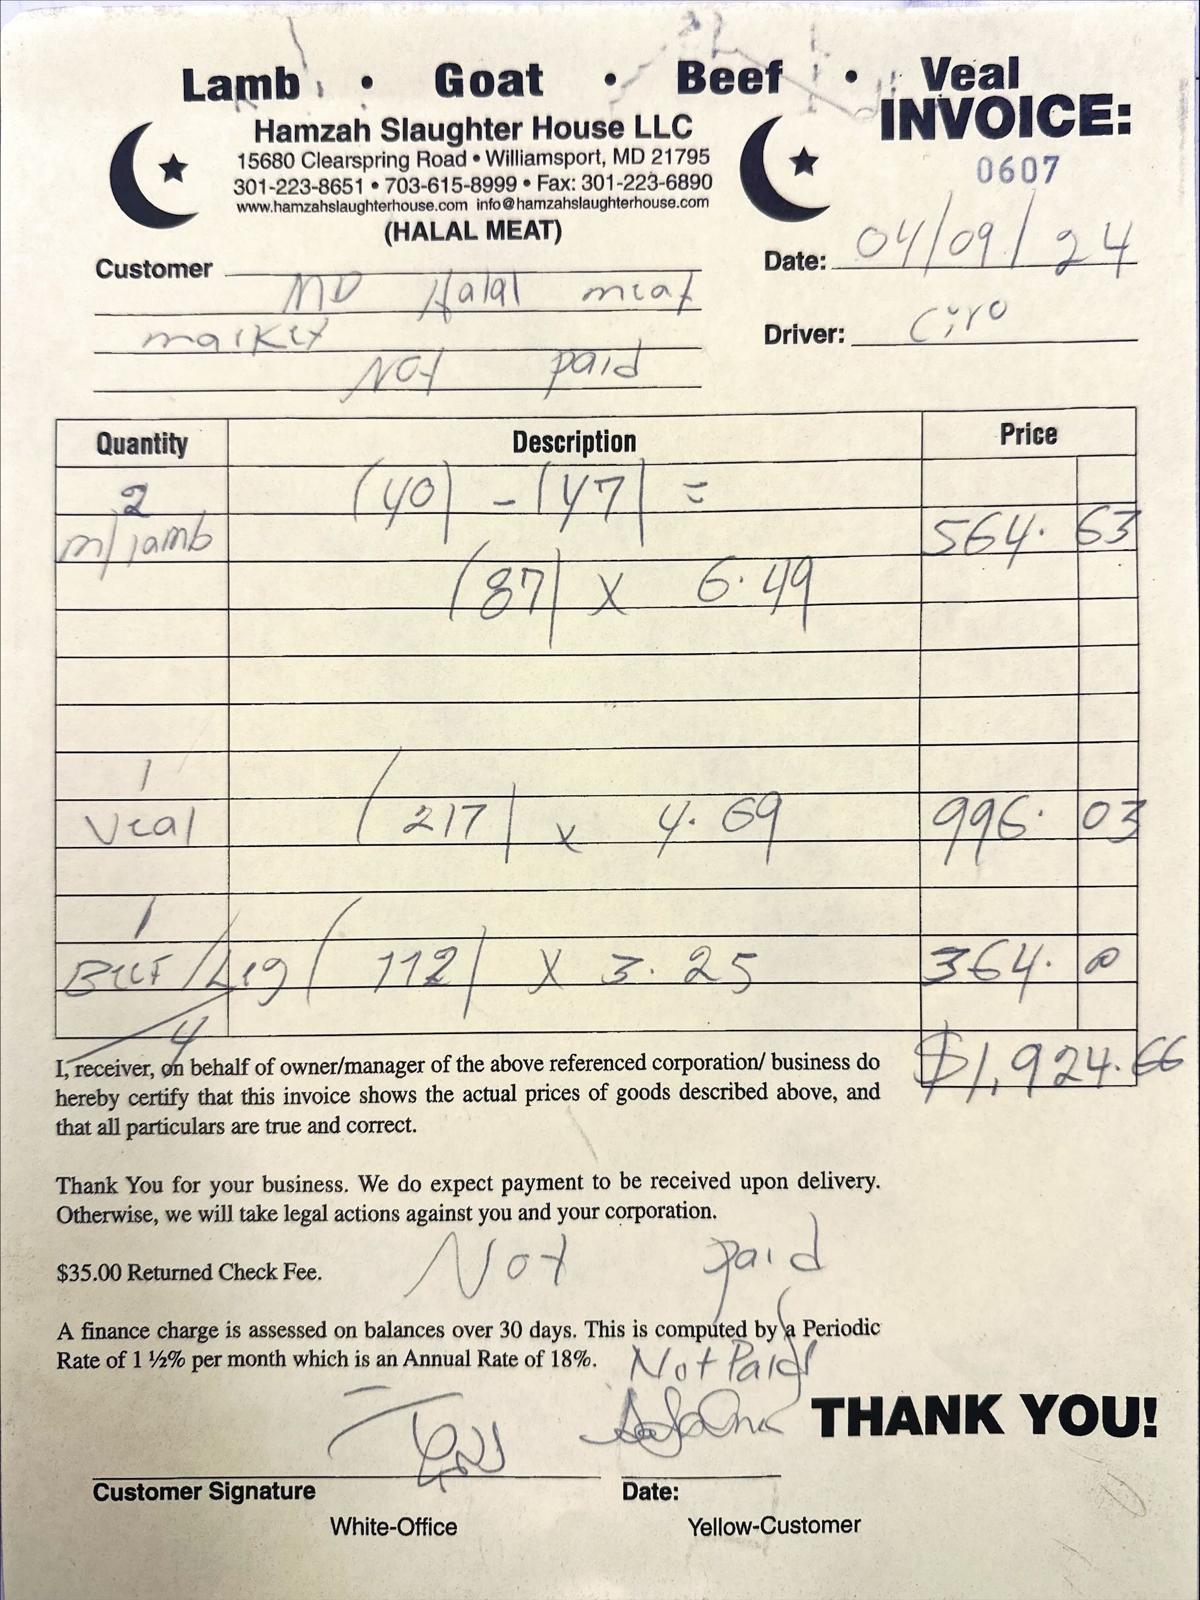 Lamb • Goat • Beef • Veal
INVOICE:
0607
Hamzah Slaughter House LLC
15680 Clearspring Road • Williamsport, MD 21795
301-223-8651 • 703-615-8999 • Fax: 301-223-6890
www.hamzahslaughterhouse.com info@hamzahslaughterhouse.com
(HALAL MEAT)
Date: 04/09/24
Customer MD Halal meat
market
Driver: Ciro
Not paid
Quantity Description Price
2 (40) - (47) =
m/lamb 564. 63
(87) x 6.49
1
Veal (217) x 4.69 996. 03
1
Beef/Leg (112) x 3.25 364. 00
4
$1,924.66
I, receiver, on behalf of owner/manager of the above referenced corporation/ business do
hereby certify that this invoice shows the actual prices of goods described above, and
that all particulars are true and correct.
Thank You for your business. We do expect payment to be received upon delivery.
Otherwise, we will take legal actions against you and your corporation.
Not paid
$35.00 Returned Check Fee.
A finance charge is assessed on balances over 30 days. This is computed by a Periodic
Rate of 1 ½% per month which is an Annual Rate of 18%.
Not Paid
THANK YOU!
Customer Signature Date:
White-Office Yellow-Customer